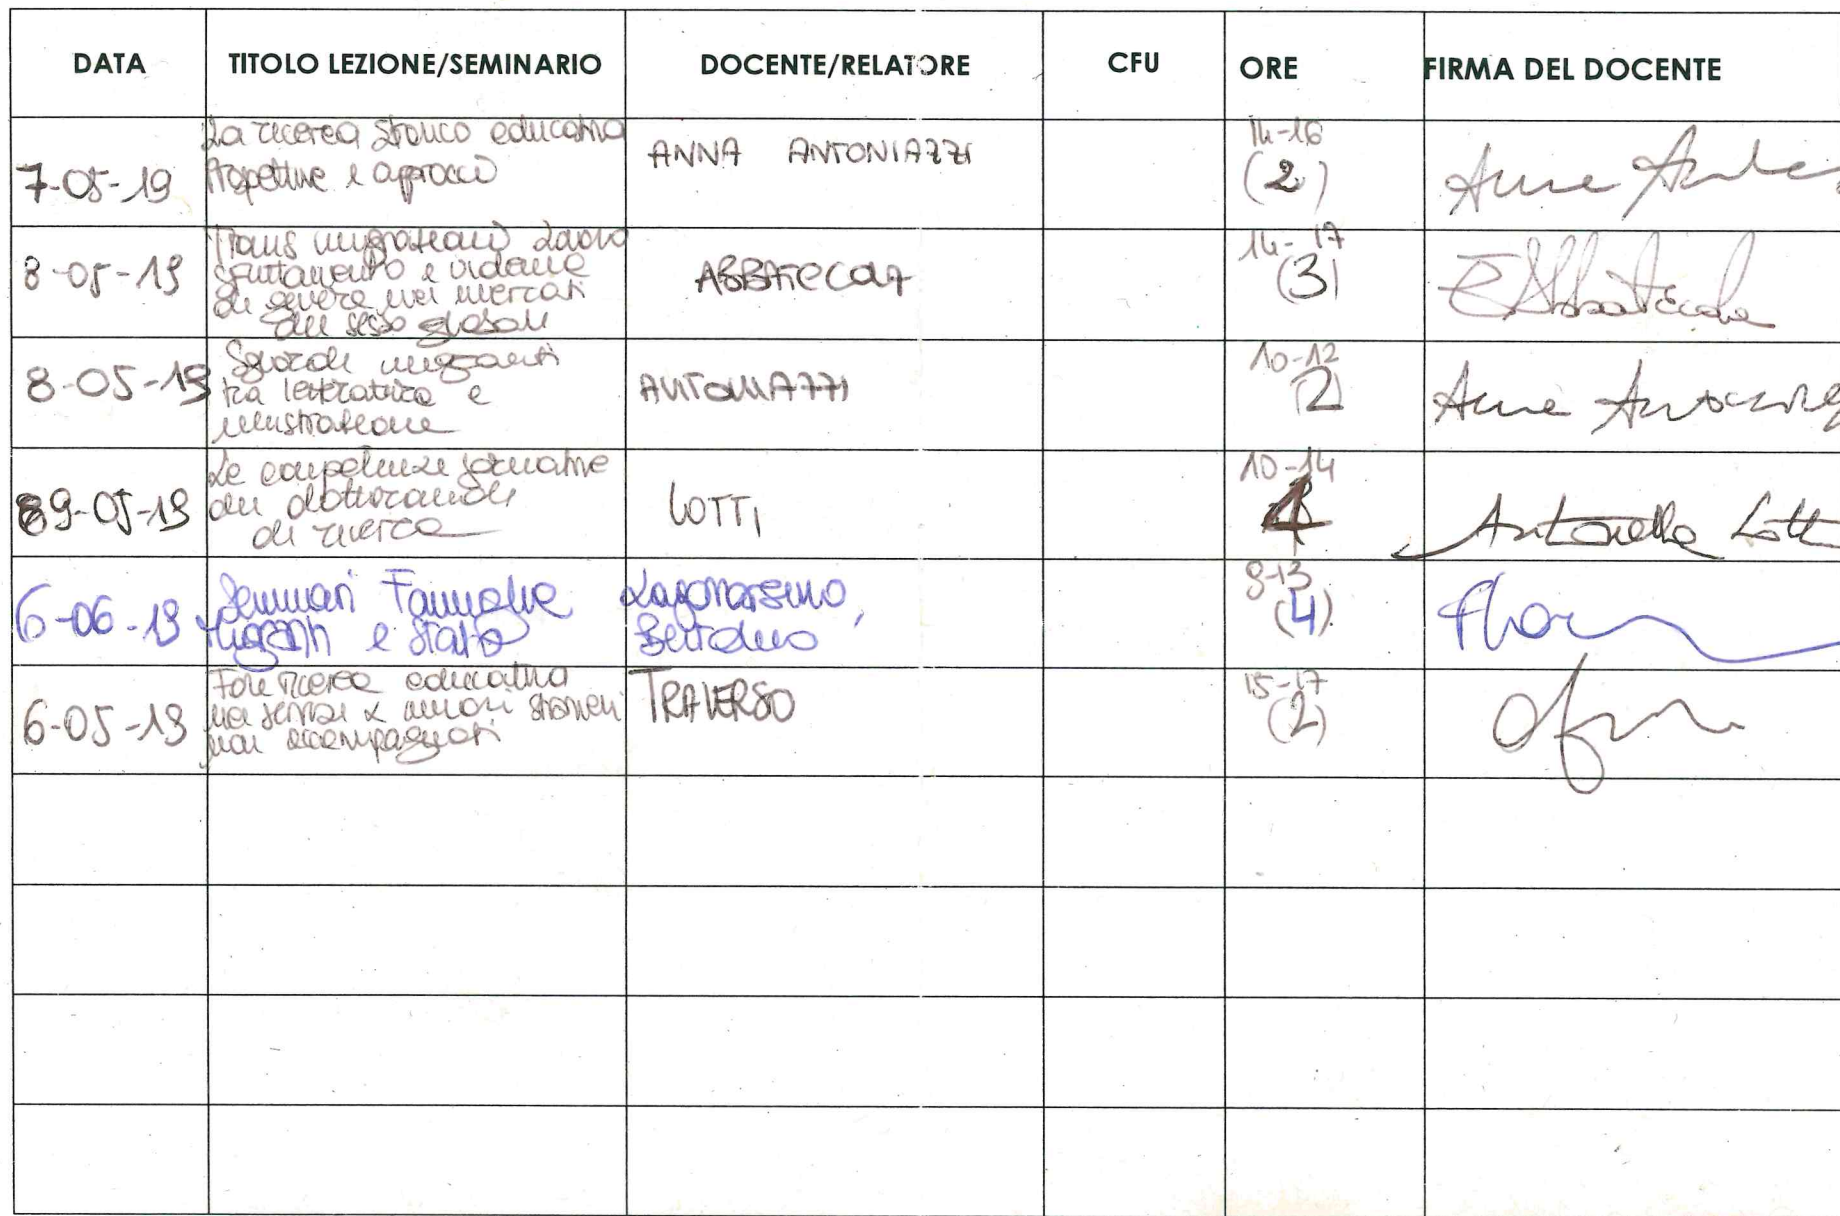 DATA TITOLO LEZIONE/SEMINARIO DOCENTE/RELATORE CFU ORE FIRMA DEL DOCENTE
La ricerca storico educativa
Prospettive e approcci
7-05-19 ANNA ANTONIAZZI 14-16
(2)
Trans migrazioni lavoro
sfruttamento e violenze
di genere nei mercati
del sesso globali
8-05-19 ABBATECOLA 14-17
(3)
E Abbatecola
Sguardi migranti
tra letteratura e
illustrazione
8-05-19 ANTONIAZZI 10-12
2
Le competenze formative
dei dottorandi
di ricerca
9-05-19 LOTTI 10-14
4
Antonella Lotti
6-06-19 Seminari Famiglie
Migranti e Stato
Lagomarsino,
9-13
(4)
Fare ricerca educativa
nei servizi x minori stranieri
non accompagnati
6-05-19 TRAVERSO 15-17
(2)